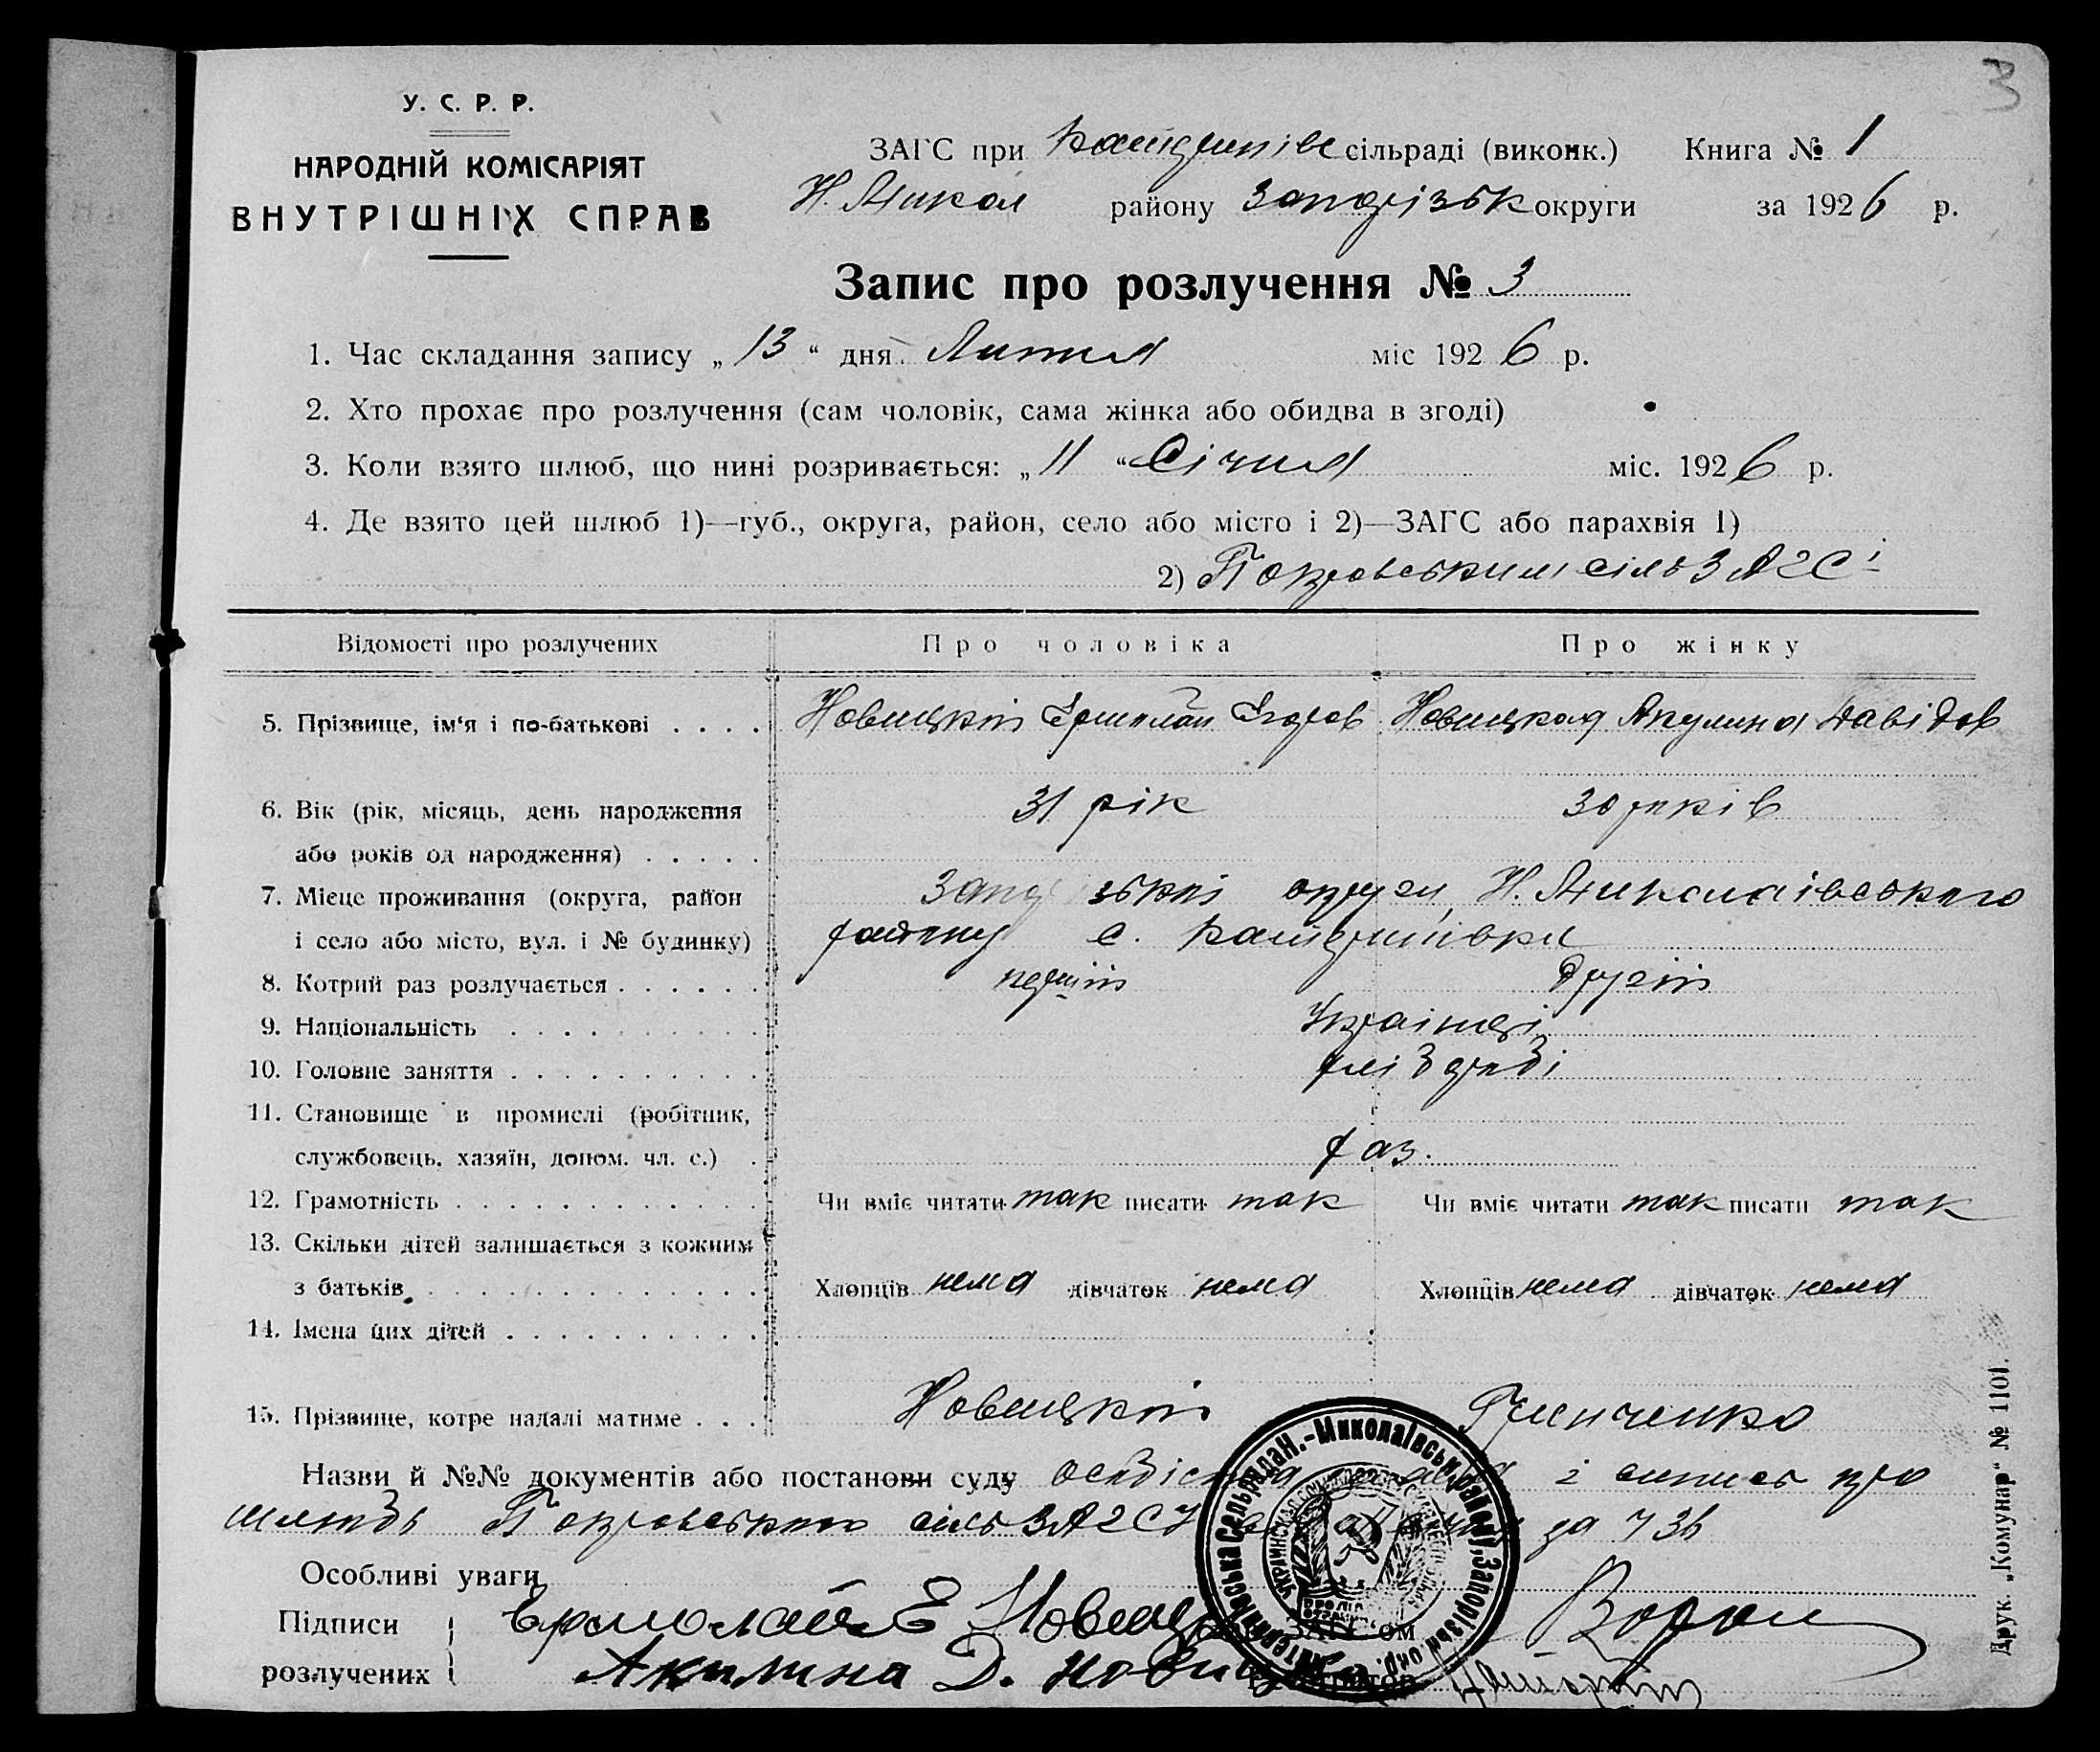 3
У. С. Р. Р.
НАРОДНІЙ КОМІСАРІЯТ
ВНУТРІШНІХ СПРАВ
ЗАГС при сільраді (виконк.) Книга № 1
Н. Микол району Запорізьк округи за 1926 р.
Запис про розлучення № 3
1. Час складання запису „13“ дня Липня міс 1926 р.
2. Хто прохає про розлучення (сам чоловік, сама жінка або обидва в згоді)
3. Коли взято шлюб, що нині розривається: „11“ Січня міс. 1926 р.
4. Де взято цей шлюб 1)—губ., округа, район, село або місто і 2)—ЗАГС або парахвія 1)
2) Покровським сільЗАГСі
Відомості про розлучених Про чоловіка Про жінку
5. Прізвище, ім‘я і по-батькові . . . . Новицкій Ермолай Егоров Новицкая Акулина Давідов
6. Вік (рік, місяць, день народження 31 рік 30 років
або років од народження) . . . . .
7. Місце проживання (округа, район округи, Н. Миколаівського
і село або місто, вул. і № будинку) району с.
8. Котрий раз розлучається . . . . . . перший другій
9. Національність . . . . . . . . . . Украінці
10. Головне заняття . . . . . . . . . . хліборобі
11. Становище в промислі (робітник,
службовець, хазяїн, допом. чл. с.) . хаз.
12. Грамотність . . . . . . . . . . . . . Чи вміє читати так писати так Чи вміє читати так писати так
13. Скільки дітей залишається з кожним
з батьків . . . . . . . . . . . . . . Хлопців нема дівчаток нема Хлопців нема дівчаток нема
14. Імена цих дітей . . . . . . . . . .
15. Прізвище, котре надалі матиме . . . Новицкій Гринченко
Назви й №№ документів або постанови суду і випись про
шлюбь Покровського сільЗАГСУ за ч 36
Особливі уваги
Підписи Ермолай Е Новиц ЗАГС‘ом
розлучених Акилина Д. Нови
Сельрада Н.-Миколаївськ. району, Запорізьк. окр.
Друк. „Комунар“ № 1101.